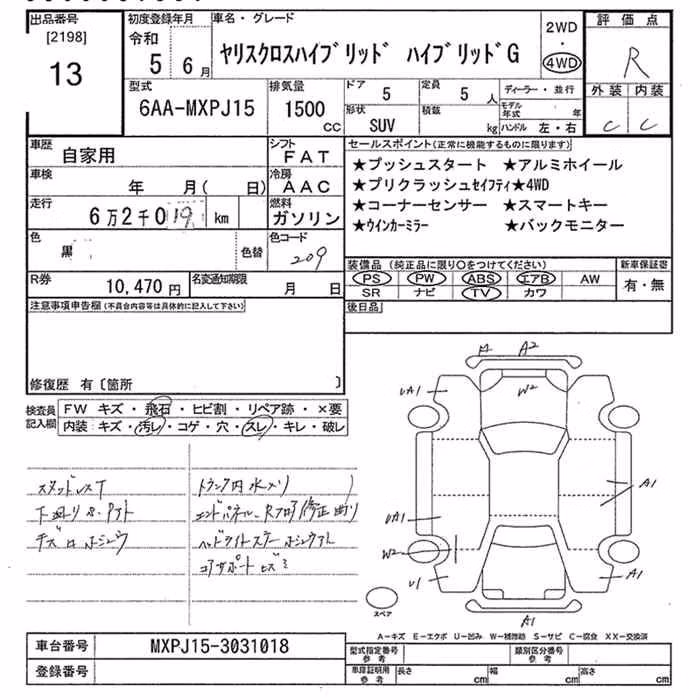 出品番号 初度登録年月 車名・グレード 2WD・4WD 評価点
[2198] 令和 5 6月 ヤリスクロスハイブリッド ハイブリッドG R
13 型式 排気量 ドア 定員 ディーラー・並行 外装 内装
6AA-MXPJ15 1500 CC 5 5人 モデル年式 年 C C
形状 積載 kg ハンドル 左・右
SUV
車歴 シフト セールスポイント(正常に機能するものに限ります)
自家用 FAT ★プッシュスタート ★アルミホイール
車検 年 月(日) 冷房 AAC ★プリクラッシュセイフティ★4WD
走行 燃料 ★コーナーセンサー ★スマートキー
6万2千019 km ガソリン ★ウインカーミラー ★バックモニター
色 色替 色コード
黒 209 装備品(純正品に限り○をつけてください) 新車保証書
R券 名変通知期限 PS PW ABS エアB AW 有・無
10,470円 月 日 SR ナビ TV カワ
注意事項申告欄(不具合内容等は具体的に記入して下さい) 後日品
修復歴 有〔箇所 〕
検査員記入欄 FW キズ・飛石・ヒビ割・リペア跡・×要
内装:キズ・汚レ・コゲ・穴・スレ・キレ・破レ
トランク内水メリ
A A2
W2
UA1
A1
UA1
W2
U1
A1
A1
スペア
A-キズ E-エクボ U-凹み W-補修跡 S-サビ C-腐食 XX-交換済
車台番号 MXPJ15-3031018 型式指定番号 参考 類別区分番号 参考
登録番号 車庫証明用 参考 長さ cm 幅 cm 高さ cm